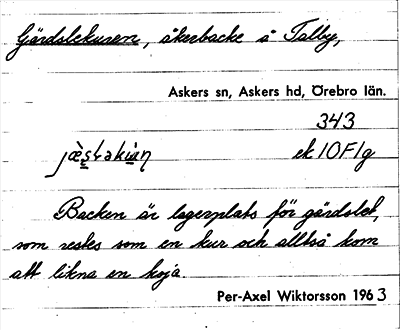 Gärdslekuren, åkerbacke å Talby,
Askers sn, Askers hd, Örebro län.
343
ek 10F1g
Backen är lagerplats för gärdslet,
som restes som en kur och alltså kom
att likna en koja.
Per-Axel Wiktorsson 1963